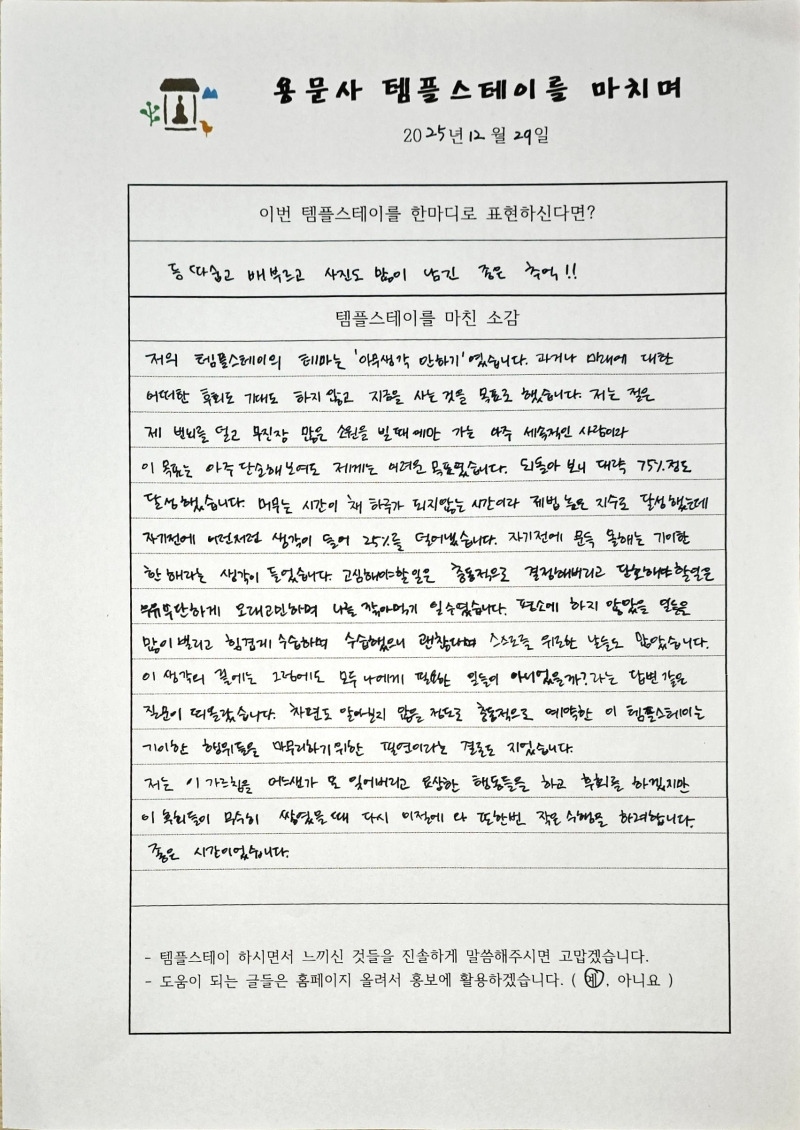 용문사 템플스테이를 마치며
2025년 12월 29일
이번 템플스테이를 한마디로 표현하신다면?
등 따숩고 배부르고 사진도 많이 남긴 좋은 추억!!
템플스테이를 마친 소감
저의 템플스테이의 테마는 '아무생각 안하기'였습니다. 과거나 미래에 대한
어떠한 후회도 기대도 하지 않고 지금을 사는 것을 목표로 했습니다. 저는 절은
제 번뇌를 덜고 무진장 많은 소원을 빌 때에만 가는 아주 세속적인 사람이라
이 목표는 아주 단순해 보여도 제게는 어려운 목표였습니다. 되돌아 보니 대략 75%정도
달성했습니다. 머무는 시간이 채 하루가 되지않는 시간이라 제법 높은 지수로 달성했는데
자기전에 어떤저런 생각이 들어 25%를 덜어냈습니다. 자기전에 문득 올해는 기이한
한 해라는 생각이 들었습니다. 고심해야할일은 충동적으로 결정해버리고 단호해야할일은
우유부단하게 오래고민하며 나를 깎아먹기 일수였습니다. 평소에 하지 않았을 일들은
많이 벌리고 힘겹게 수습하며 수습했으니 괜찮다며 스스로를 위로한 날들도 많았습니다.
이 생각의 끝에는 그럼에도 모두 나에게 필요한 일들이 아니었을까?라는 답변 같은
질문이 떠올랐습니다. 차편도 알아보지 않을 정도로 충동적으로 예약한 이 템플스테이는
기이한 행위들을 마무리하기위한 필연이라는 결론도 지었습니다.
저는 이 가르침을 어느샌가 또 잊어버리고 요상한 행동들을 하고 후회를 하겠지만
이 후회들이 무수히 쌓였을 때 다시 이절에 와 또한번 작은 수행을 하려합니다.
좋은 시간이었습니다.
- 템플스테이 하시면서 느끼신 것들을 진솔하게 말씀해주시면 고맙겠습니다.
- 도움이 되는 글들은 홈페이지 올려서 홍보에 활용하겠습니다. ( 예, 아니요 )